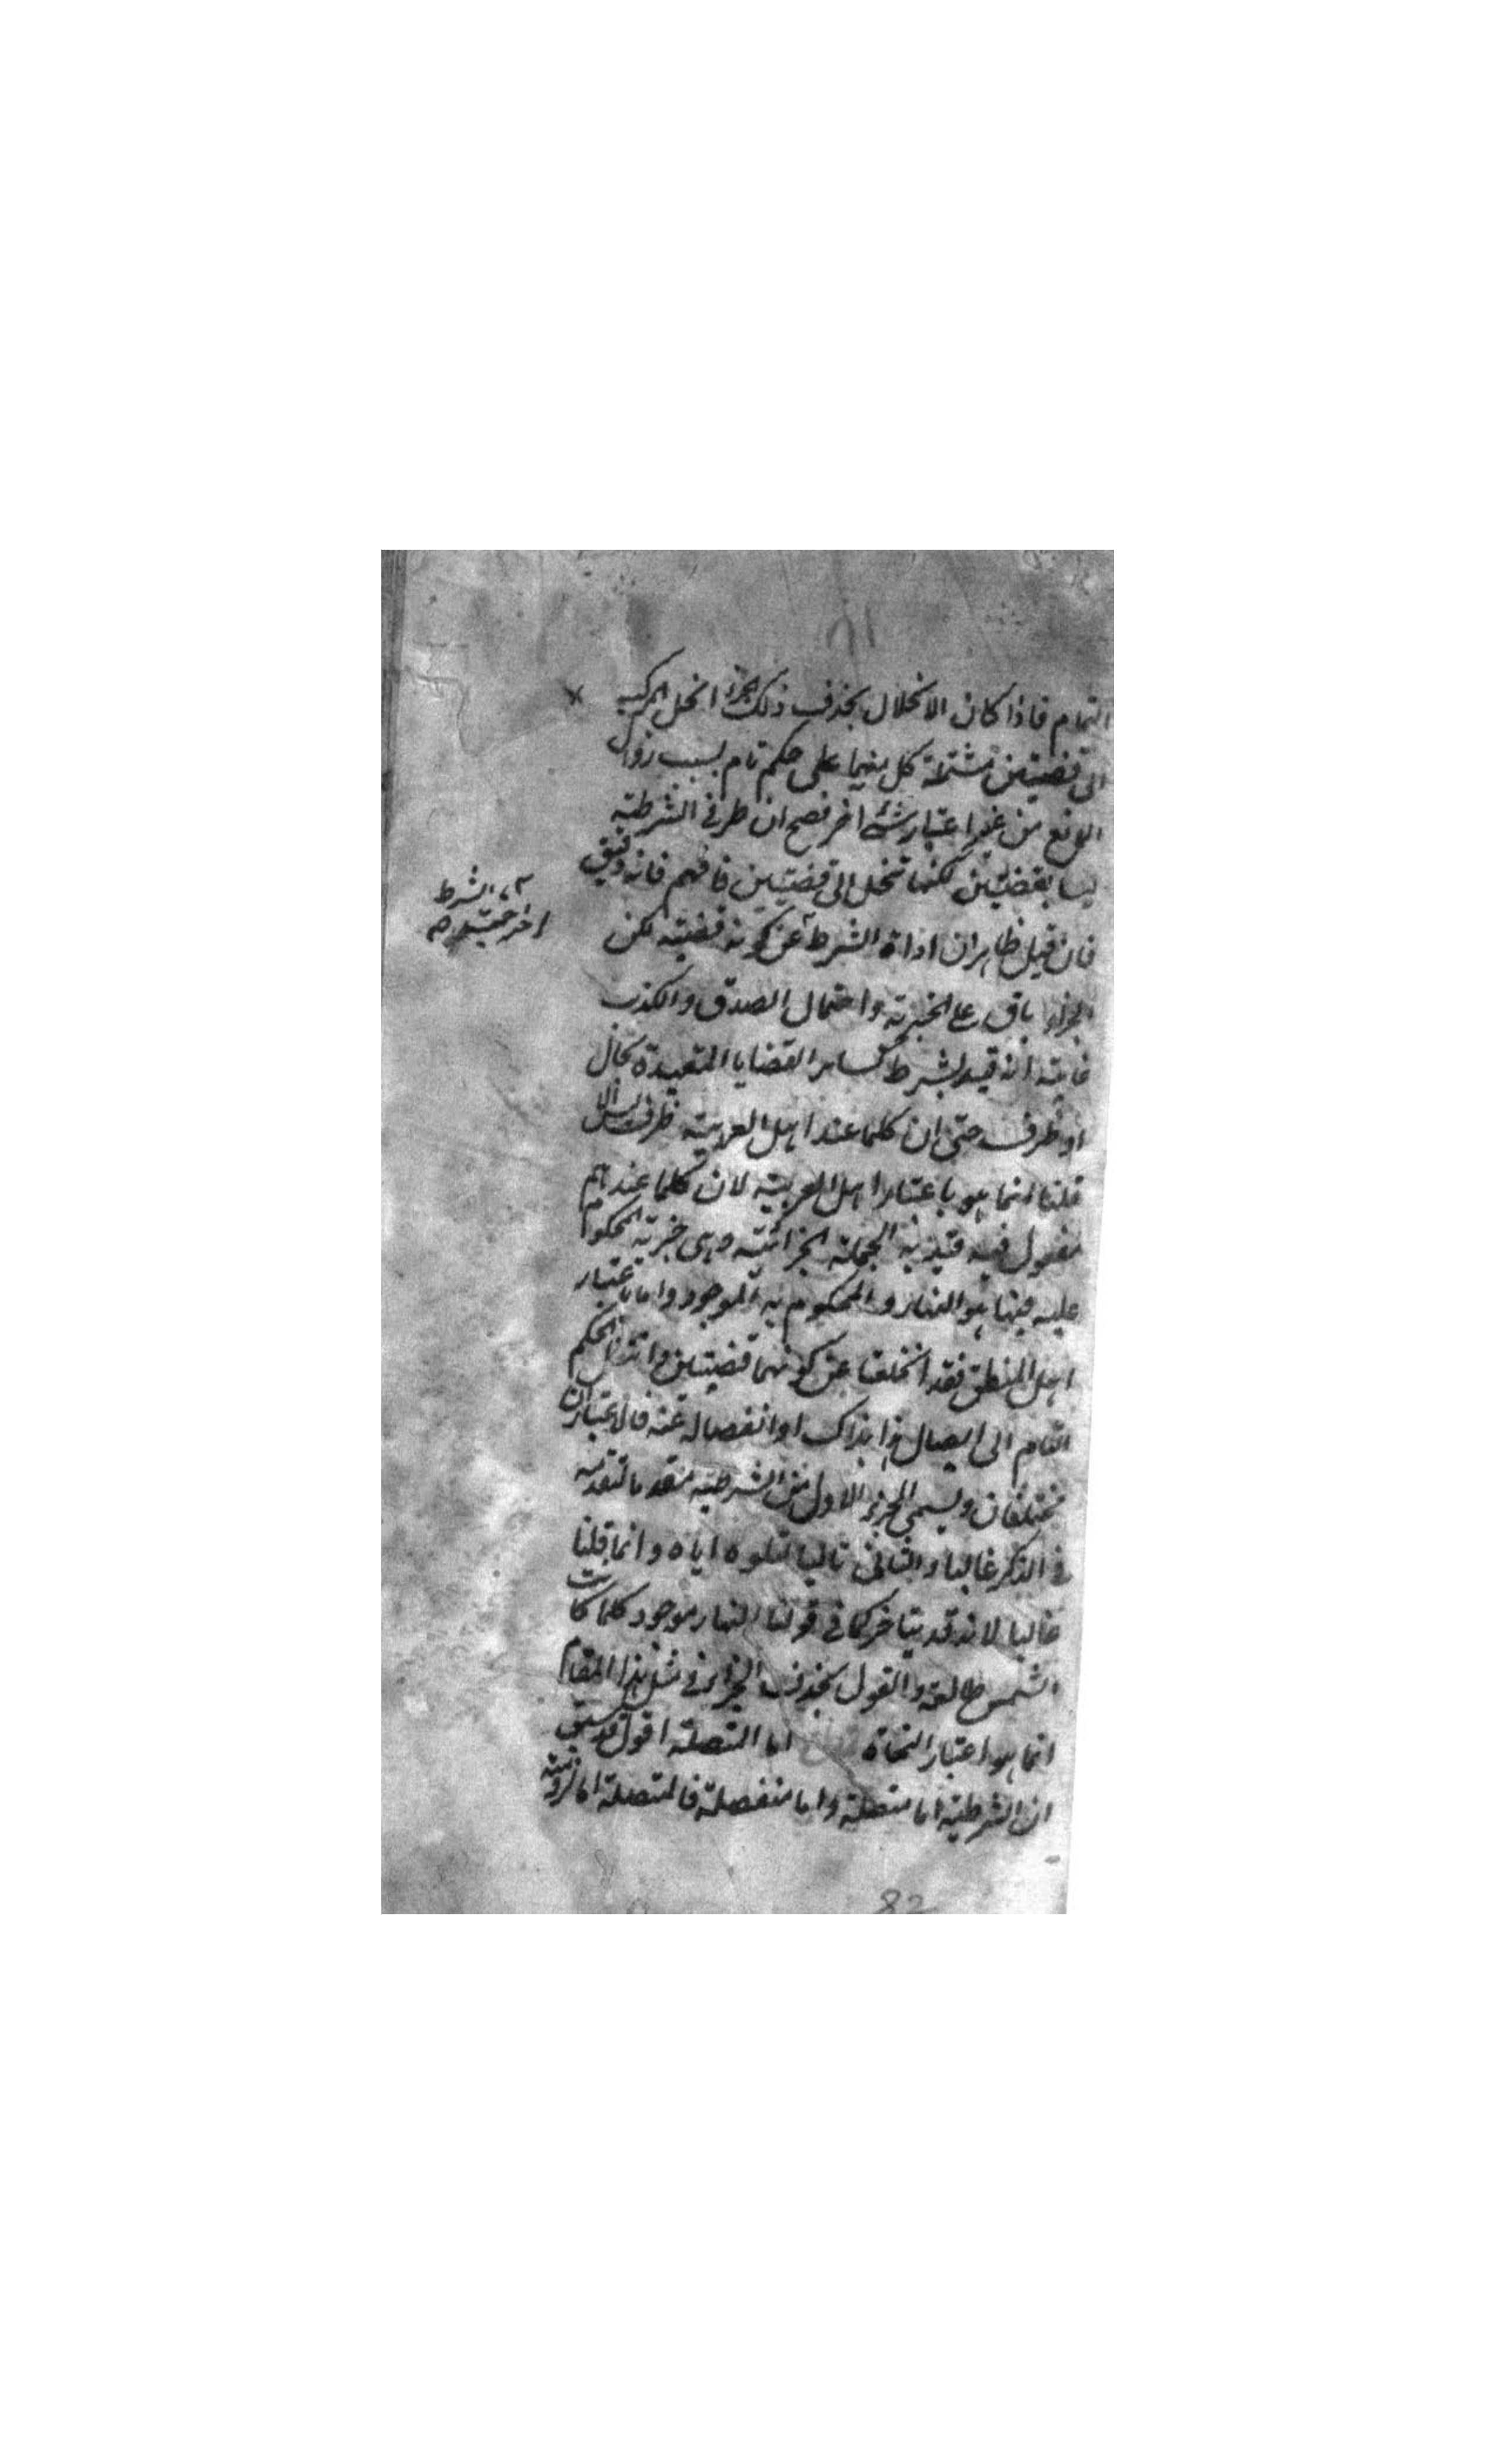 التمام فاذا كان الانحلال بحذف ذلك الجزء انحل المركب
الى قضيتين مشتملة كل منهما على حكم تام بسبب زوال
المانع من غير اعتبار شئ اخر فصح ان طرفى الشرطية
ليسا بقضيتين لكنها تنحل الى قضيتين فافهم فانه دقيق
فان قيل ظاهر ان اداة الشرط عن كونه قضية لكن
الجزاء باق على الخبرية واحتمال الصدق والكذب
غايته انه قيد بشرط كساير القضايا المقيدة بحال
او ظرف حتى ان كلما عند اهل العربية ظرف
قلنا انما هو باعتبار اهل العربية لان كلما عندهم
مفعول فيه قيد به الجملة الجزائية وهى خبرية المحكوم
عليه فيها هو النهار والمحكوم به الموجود واما باعتبار
اهل المنطق فقد انخلعتا عن كونهما قضيتين وانتقل الحكم
التام الى ايصال هذا بذاك او انفصاله عنه فالاعتباران
مختلفان ويسمى الجزء الاول من الشرطية مقدما لتقدمه
فى الذكر غالبا والثانى تاليا لتلوه اياه وانما قلنا
غالبا لانه قد يتاخر كما فى قولنا النهار موجود كلما كانت
الشمس طالعة والقول بحذف الجزاء فى مثل هذا المقام
انما هو اعتبار النحاة اما المتصلة اقول قد سبق
ان الشرطية اما متصلة واما منفصلة فالمتصلة اما لزومية
الشرط
اخرجت
82